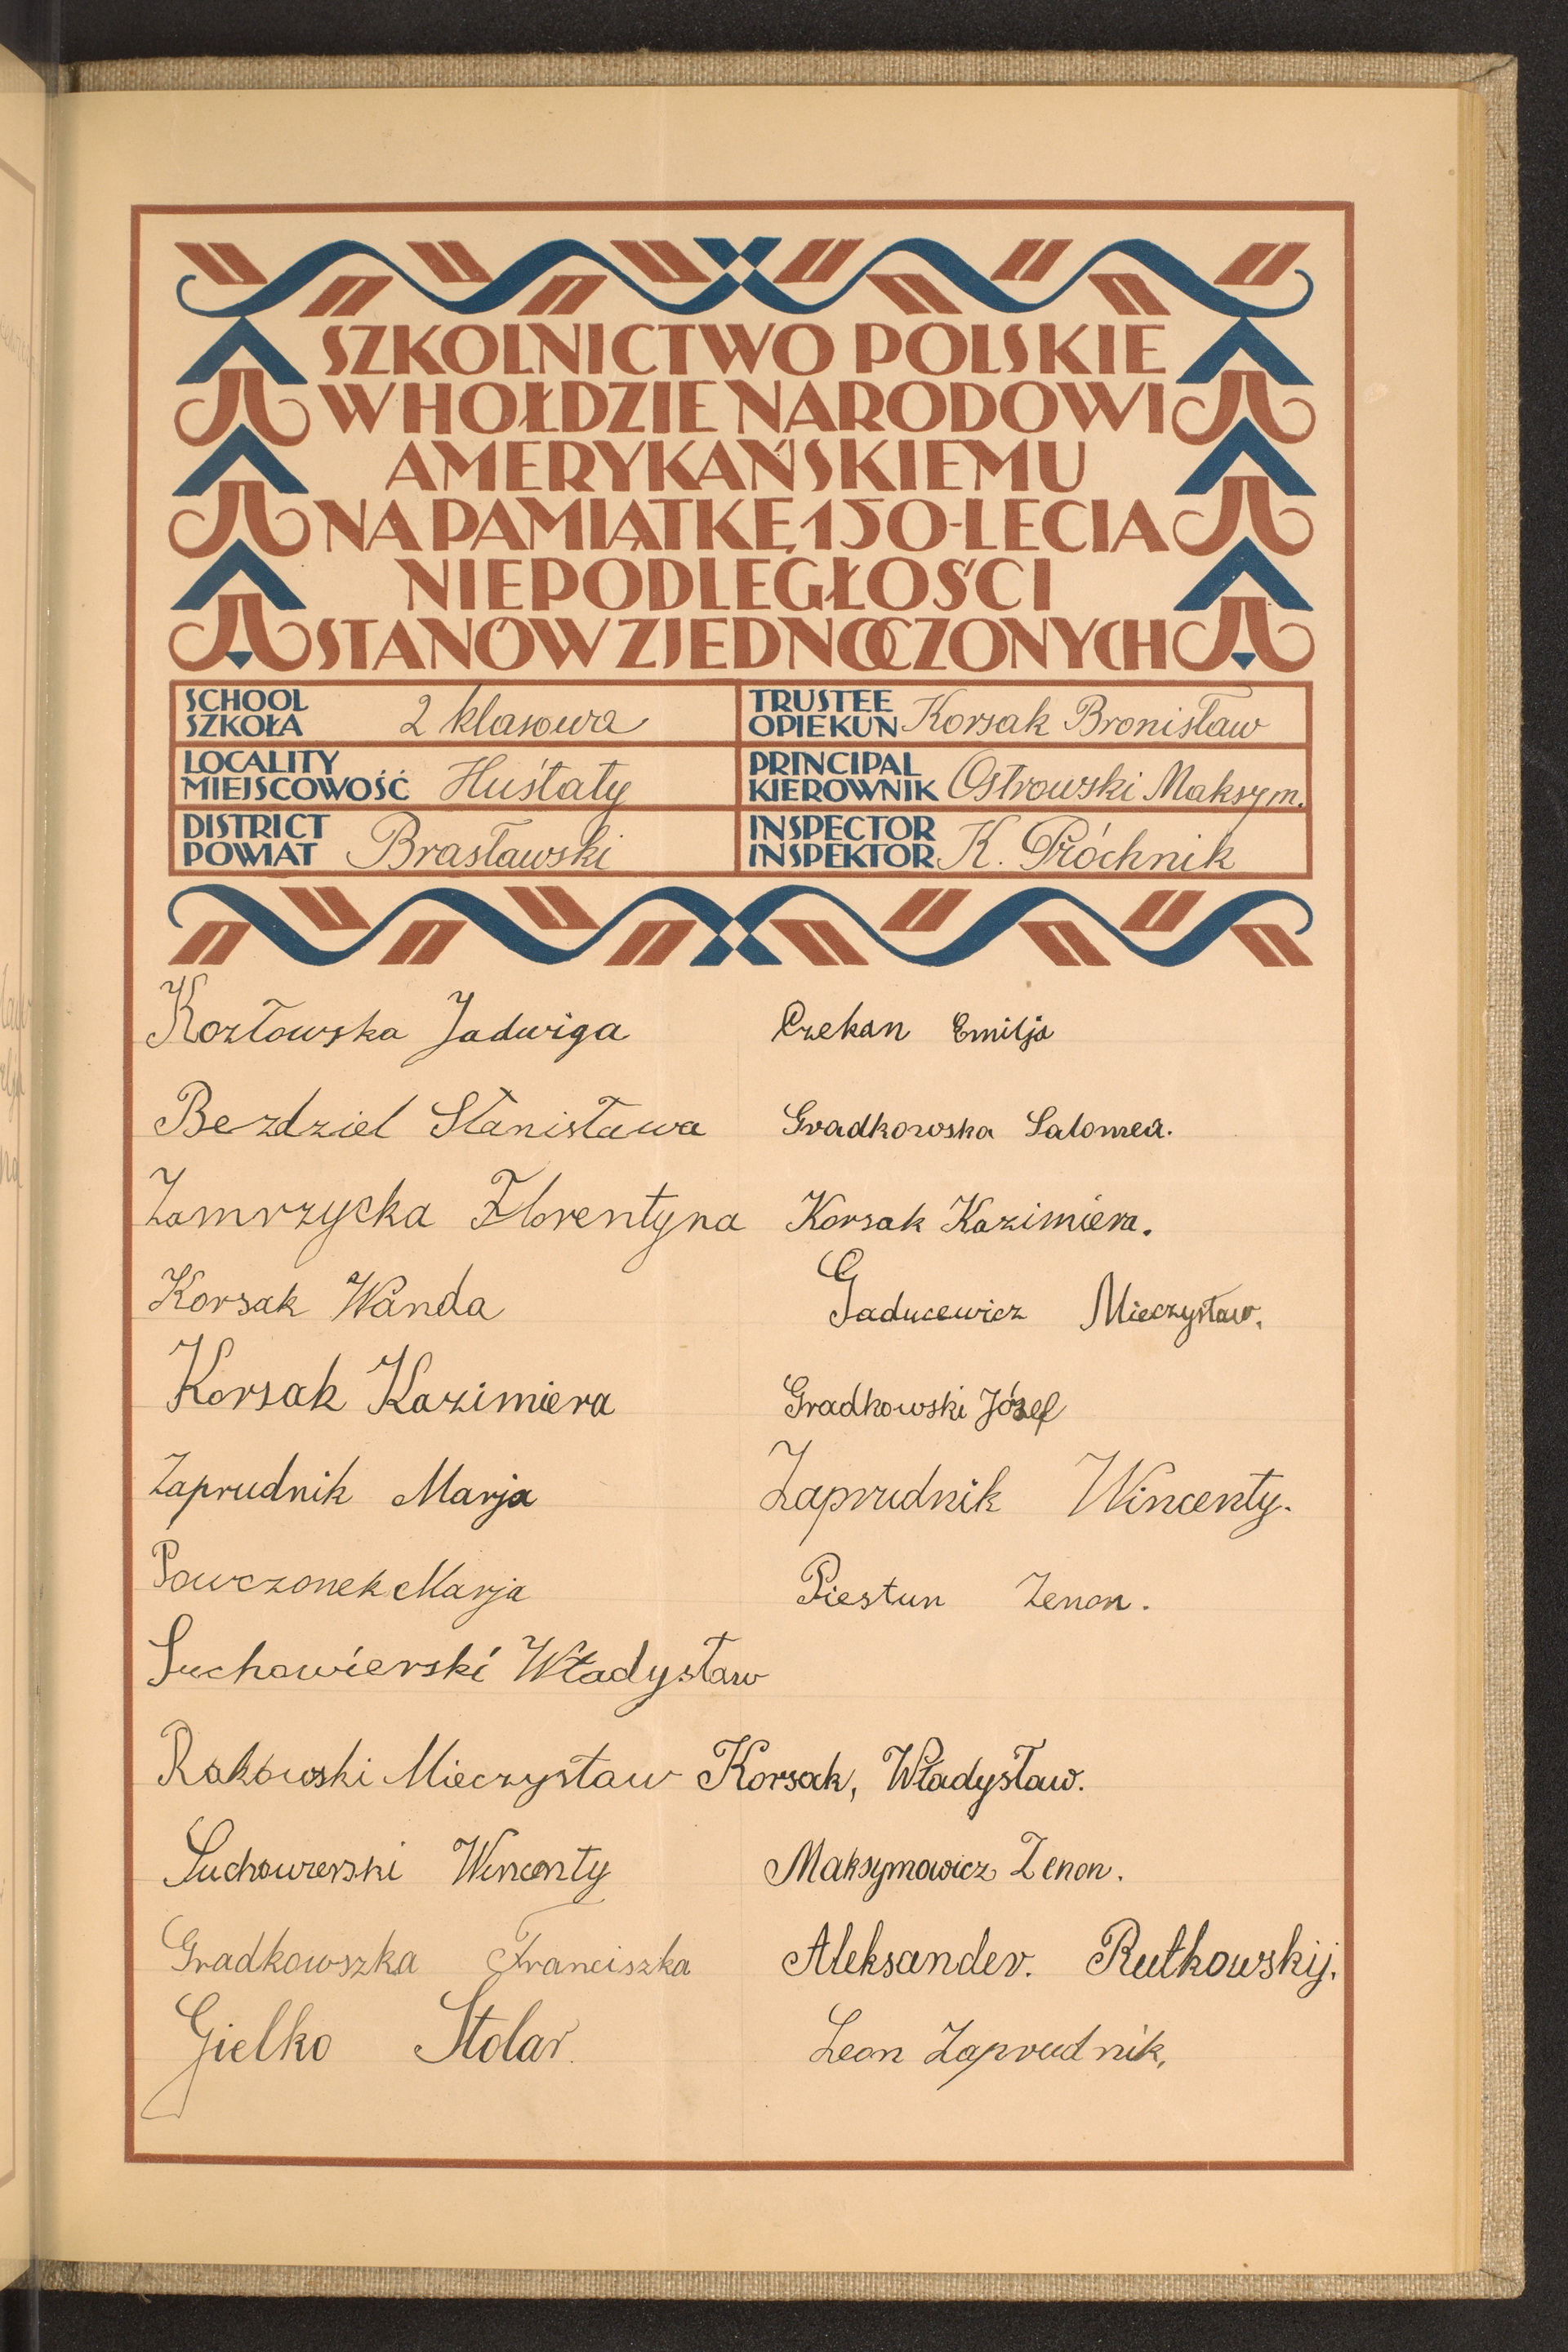 SZKOLNICTWO POLSKIE
W HOŁDZIE NARODOWI
AMERYKAŃSKIEMU
NA PAMIĄTKĘ 150-LECIA
NIEPODLEGŁOŚCI
STANÓW ZJEDNOCZONYCH
SCHOOL
SZKOŁA 2 klasowa
TRUSTEE
OPIEKUN Korsak Bronisław
LOCALITY
MIEJSCOWOŚĆ Huśtaty
PRINCIPAL
KIEROWNIK Ostrowski Maksym.
DISTRICT
POWIAT Brasławski
INSPECTOR
INSPEKTOR K. Próchnik
Kozłowska Jadwiga
Bezdziel Stanisława
Zamrzycka Florentyna
Korsak Wanda
Korsak Kazimiera
Zaprudnik Marja
Powczonek Marja
Suchowierski Władysław
Rakowski Mieczysław
Suchowierski Wincenty
Gradkowszka Franciszka
Gielko Stolar.
Czekan Emilja
Gradkowska Salomea.
Korsak Kazimiera.
Gaducewicz Mieczysław.
Gradkowski Józef
Zaprudnik Wincenty.
Piestun Zenon.
Korsak, Władysław.
Maksymowicz Zenon.
Aleksander. Rutkowskij.
Leon Zaprudnik,